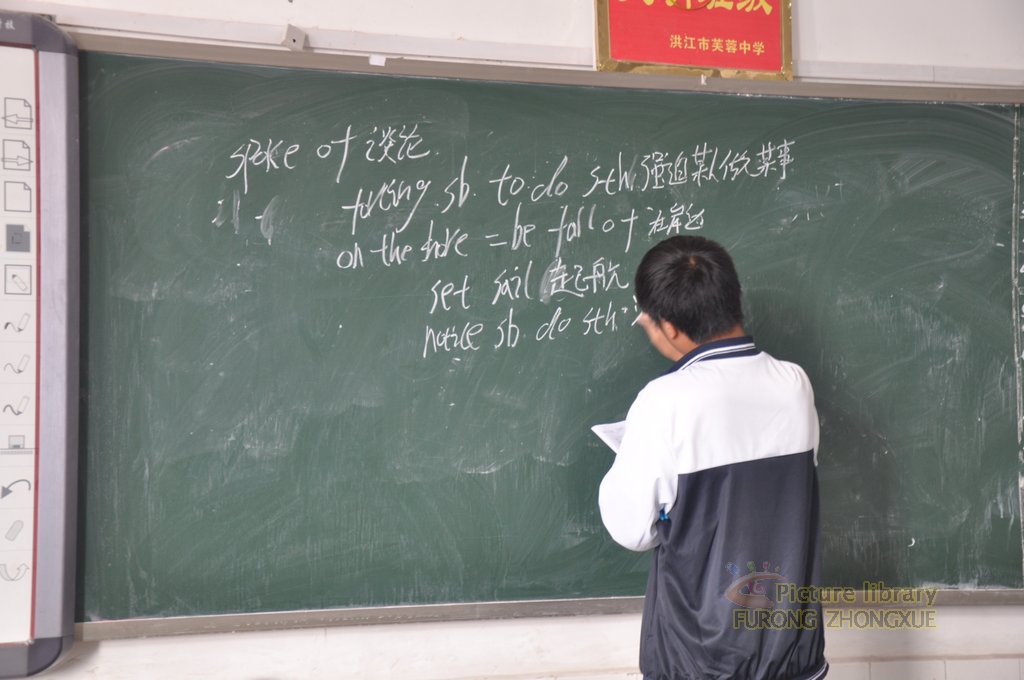 洪江市芙蓉中学
spoke of 谈论
forcing sb. to do sth. 强迫某人做某事
on the shore = be fall of 在岸边
set sail 起航
notice sb. do sth.
Picture library
FURONG ZHONGXUE